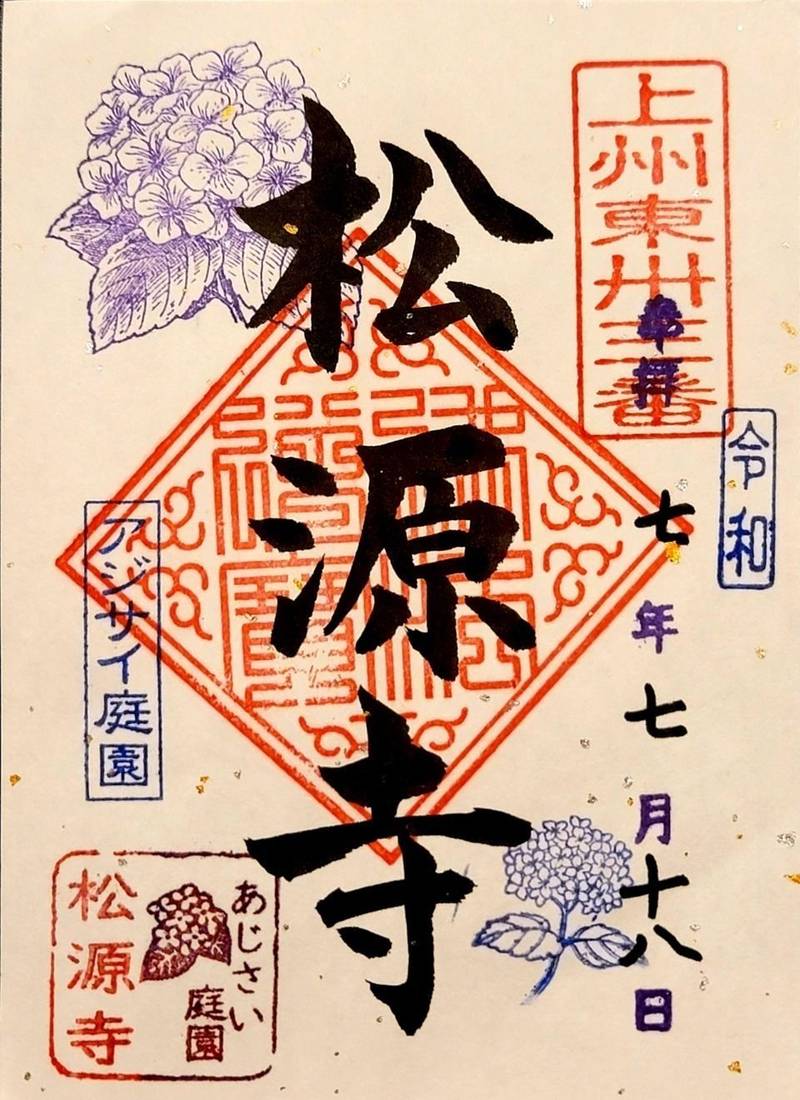 上州東卅三番
奉拝
令和
七年七月十八日
松源寺
アジサイ庭園
あじさい
庭園
松源寺